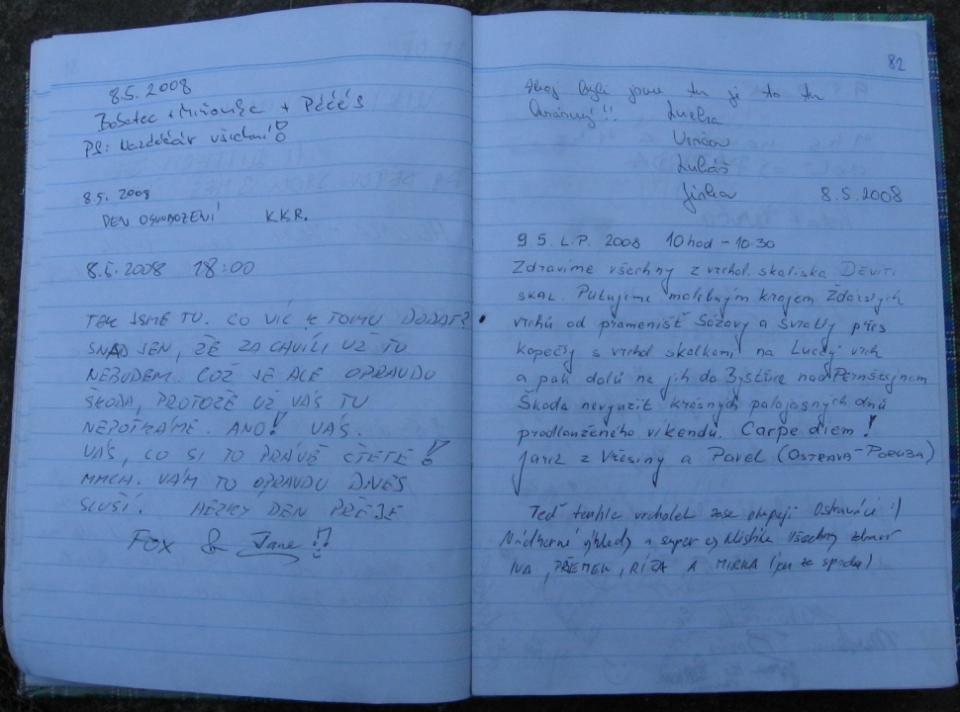 8.5.2008
+ Miňonka + Péčés
PS: Nazdááár všichni!
8.5. 2008
DEN OSVOBOZENÍ K.K.R.
8.5.2008 18:00
TAK JSME TU. CO VÍC K TOMU DODAT?
SNAD JEN, ŽE ZA CHVÍLI UŽ TU
NEBUDEM. COŽ JE ALE OPRAVDU
ŠKODA, PROTOŽE UŽ VÁS TU
NEPOTKÁME. ANO! VÁS.
VÁS, CO SI TO PRÁVĚ ČTETE!
MMCH. VÁM TO OPRAVDU DNES
SLUŠÍ. HEZKÝ DEN PŘEJE
FOX & Jane !!
82
Ahoj byli jsme tu je to tu
Úžasný!! Lucka
Lukáš
Jirka 8.5.2008
9 5. L.P. 2008 10 hod - 10.30
Zdravíme všechny z vrchol. skaliska DEVÍTI
SKAL. Putujeme malebným krajem Žďárských
vrchů od pramenišť Sázavy a Svratky přes
kopečky s vrchol skalkami na Lucký vrch
a pak dolů na jih do Bystřice nad PERNŠTEJNEM
Škoda nevyužít krásných polojasných dnů
prodlouženého víkendu. Carpe diem!
Jarič z Vřesiny a Pavel (OSTRAVA-PORUBA)
Teď tenhle vrcholek zase okupují Ostraváci :)
Nádherné výhledy a super Všechny zdraví
IVA, PŘEMEK, RÍŠA A MIRKA (jen ze spodu)